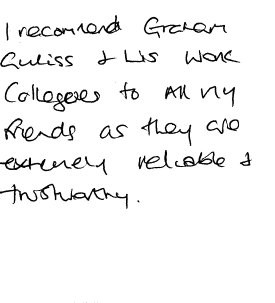 I recommend Graham
& his work
Collegees to All my
friends as they are
extremely reliable &
trustworthy.